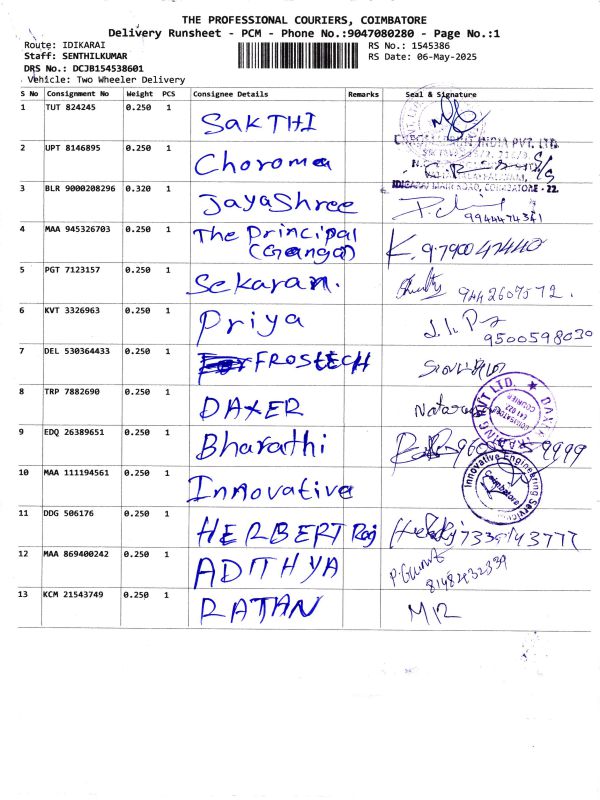 THE PROFESSIONAL COURIERS, COIMBATORE
Delivery Runsheet - PCM - Phone No.:9047080280 - Page No.:1
Route: IDIKARAI
RS No.: 1545386
Staff: SENTHILKUMAR
RS Date: 06-May-2025
DRS No.: DCJB154538601
Vehicle: Two Wheeler Delivery
S No Consignment No Weight PCS Consignee Details Remarks Seal & Signature
1 TUT 824245 0.250 1 SAKTHI
2 UPT 8146895 0.250 1 Choroma
INDIA PVT. LTD.
IDIGARAI MAIN ROAD, COIMBATORE - 22.
3 BLR 9000208296 0.320 1 JayaShree
4 MAA 945326703 0.250 1 The Principal
(Ganga)
5 PGT 7123157 0.250 1 Sekaran. 9442607572.
6 KVT 3326963 0.250 1 Priya 9500598030
7 DEL 530364433 0.250 1 FROSTECH
8 TRP 7882690 0.250 1 DAXER
9 EDQ 26389651 0.250 1 Bharathi
10 MAA 111194561 0.250 1 Innovative
Innovative Engineering Services
Coimbatore
11 DDG 506176 0.250 1 HERBERT Raj
12 MAA 869400242 0.250 1 ADITHYA
13 KCM 21543749 0.250 1 RATAN